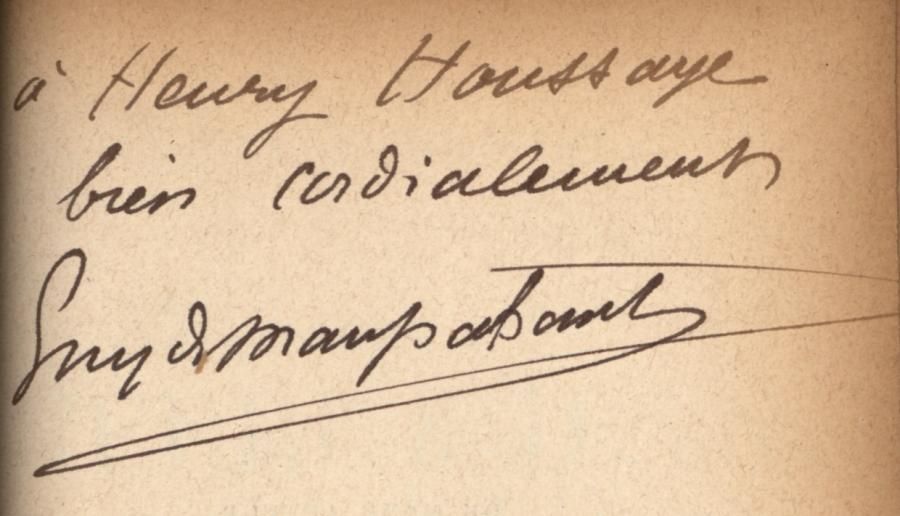 à Henry Houssaye
bien cordialement
Guy de Maupassant